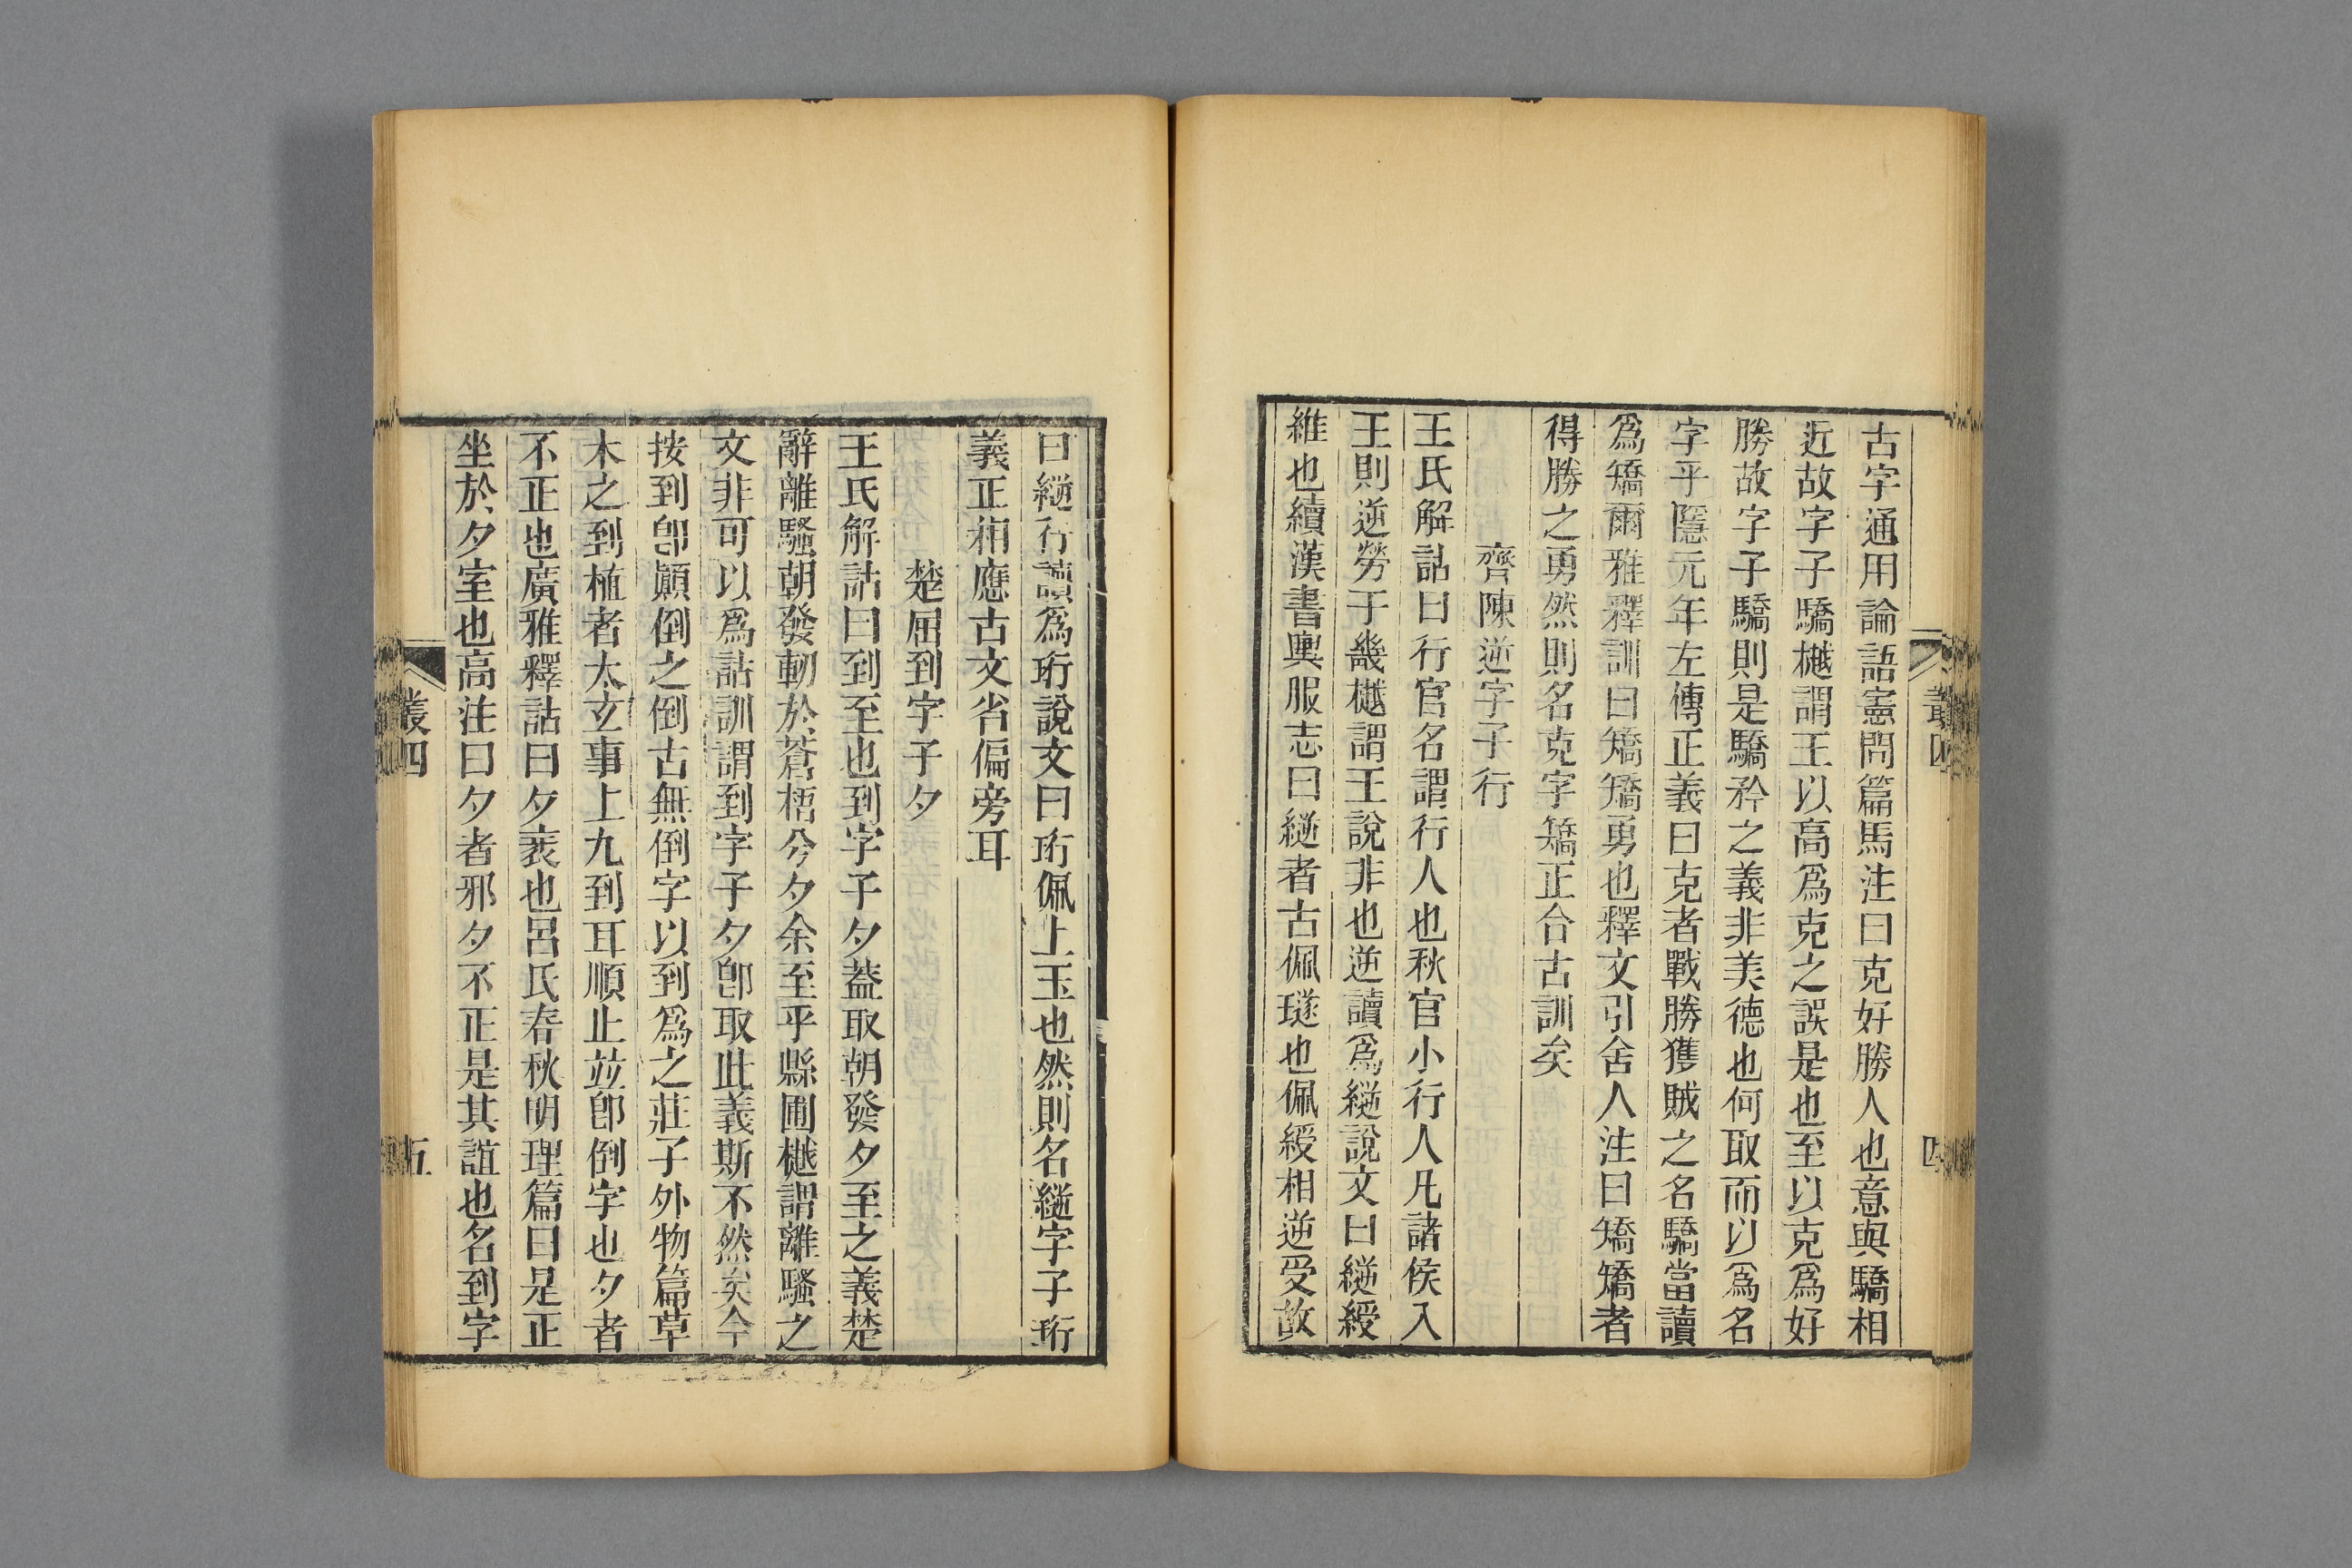 古字通用論語憲問篇馬注曰克好勝人也意與驕相
近故字子驕樾謂王以高爲克之誤是也至以克爲好
勝故字子驕則是驕矜之義非美德也何取而以爲名
字乎隱元年左傳正義曰克者戰勝獲賊之名驕當讀
爲矯爾雅釋訓曰矯矯勇也釋文引舍人注曰矯矯者
得勝之勇然則名克字矯正合古訓矣
齊陳逆字子行
王氏解詁曰行官名謂行人也秋官小行人凡諸侯入
王則逆勞于畿樾謂王說非也逆讀爲縌說文曰縌綬
維也續漢書輿服志曰縌者古佩璲也佩綬相逆受故
叢四
四
曰縌行讀爲珩說文曰珩佩上玉也然則名縌字子珩
義正相應古文省偏旁耳
楚屈到字子夕
王氏解詁曰到至也到字子夕葢取朝發夕至之義楚
辭離騷朝發軔於蒼梧兮夕余至乎縣圃樾謂離騷之
文非可以爲詁訓謂到字子夕卽取此義斯不然矣今
按到卽顚倒之倒古無倒字以到爲之莊子外物篇草
木之到植者太玄事上九到耳順止竝卽倒字也夕者
不正也廣雅釋詁曰夕衺也呂氏春秋明理篇曰是正
坐於夕室也高注曰夕者邪夕不正是其誼也名到字
叢四
五